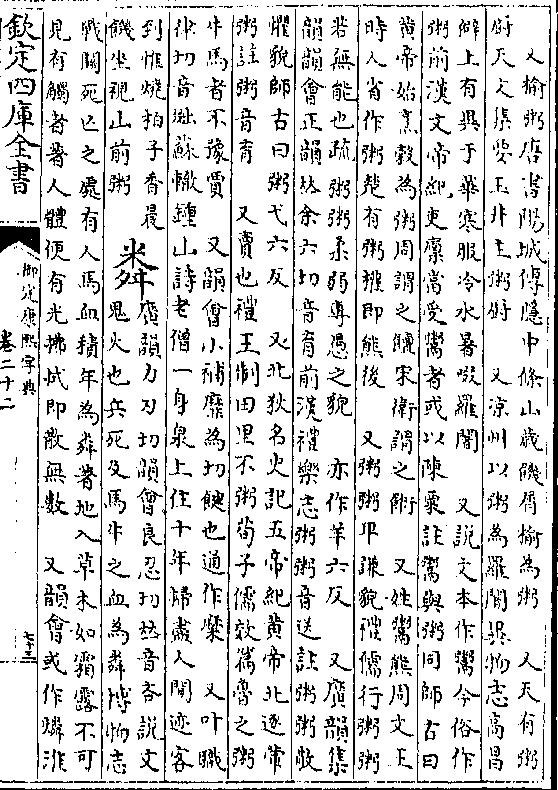 又榆粥唐書陽城傳隱中條山歲饑屑榆為粥　又天有粥
廚天文集要玉井主粥廚　又涼州以粥為羅闍異物志高昌
僻土有異于華寒服冷水暑啜羅闍　又說文本作鬻今俗作
粥前漢文帝紀吏稟當受鬻者或以陳粟註鬻與粥同師古曰
黃帝始烹穀為粥周謂之饘宋衛謂之餰　又姓鬻熊周文王
時人省作粥楚有粥㩲即熊後　又粥粥卑謙貌禮儒行粥粥
若無能也疏粥粥柔弱專愚之貌　亦作羊六反　又廣韻集
韻韻會正韻𠀤余六切音育前漢禮樂志粥粥音送註粥粥敬
懼貌師古曰粥弋六反　又北狄名史記五帝紀黃帝北逐葷
粥註粥音育　又賣也禮王制田里不粥荀子儒效篇魯之粥
牛馬者不豫賈　又韻會小補糜為切饘也通作糜　又叶職
律切音蘇轍鍾山詩老僧一身泉上住十年掃盡人間迹客
到惟燒柏子香晨
饑坐視山前粥
粦
廣韻力刃切韻會良忍切𠀤音吝說文
鬼火也兵死及馬牛之血為粦博物志
戰鬭死亡之處有人馬血積年為粦著地入草木如霜露不可
見有觸者著人體便有光拂拭即散無數　又韻會或作燐淮
欽定四庫全書
御定康熙字典
卷二十二
七十三